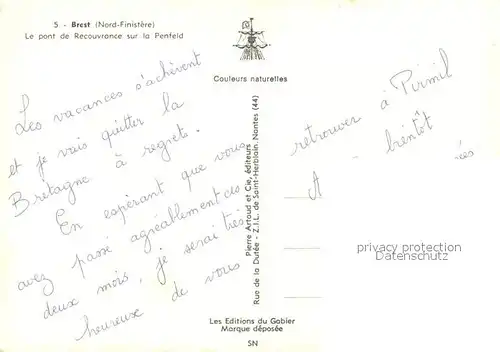 5 - Brest (Nord-Finistère)
Le pont de Recouvrance sur la Penfeld
Couleurs naturelles
Les vacances s'achèvent
et je vais quitter la
Bretagne à regrets.
En espérant que vous
avez passé agréablement ces
deux mois, je serai très
heureuse de vous
Pierre Artaud et Cie, éditeurs
Rue de la Dutée - Z.I.L. de Saint-Herblain. Nantes (44)
retrouver à Pirmil
A bientôt
privacy protection
Datenschutz
Les Editions du Gabier
Marque déposée
SN